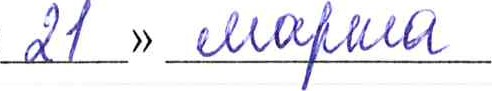 21 » марта